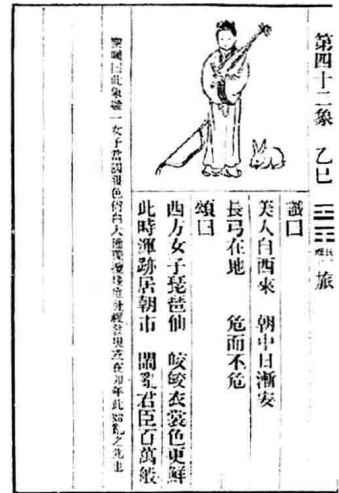 第四十二象 乙巳 旅
讖曰
美人自西來 朝中日漸安
長弓在地 危而不危
頌曰
西方女子琵琶仙 皎皎衣裳色更鮮
此時渾跡居朝市 鬧亂君臣百萬般
聖歎曰此象疑一女子當國服色尚白大權獨攬幾危社稷發現或在卯年此始亂之兆也